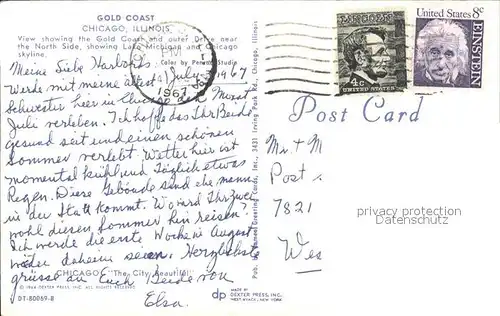 GOLD COAST
CHICAGO, ILLINOIS
View showing the Gold Coast and outer Drive near
the North Side, showing Lake Michigan and Chicago
skyline.
Color by
PM
1967
Meine Liebe Harbonds. July 1967
Werde mit meine älteste
Schwester hier in Chicago Monat
Juli verleben. Ich hoffe das Ihr Beide
gesund seit und einen schönen
Sommer verlebt. Wetter hier ist
momental kühl und täglich etwas
Regen. Diese Gebäude sind wenn man
in der Stadt kommt. Wo werd Ihr zwei
wohl diesen Sommer hin reisen?
Ich werde die erste Woche in August
wieder daheim seien. Herzlichst
grüsse an Euch Beide von
Elsa.
CHICAGO "The City Beautiful"
© 1964 DEXTER PRESS, INC. ALL RIGHTS RESERVED
DT-80069-B
Greeting Cards, Inc., 3431 Irving Park Rd., Chicago, Illinois
dp
MADE BY
DEXTER PRESS, INC.
WEST NYACK, NEW YORK
4¢
UNITED STATES
United States 8c
EINSTEIN
Post Card
Mr. + M
Post
7821
Wes
privacy protection
Datenschutz